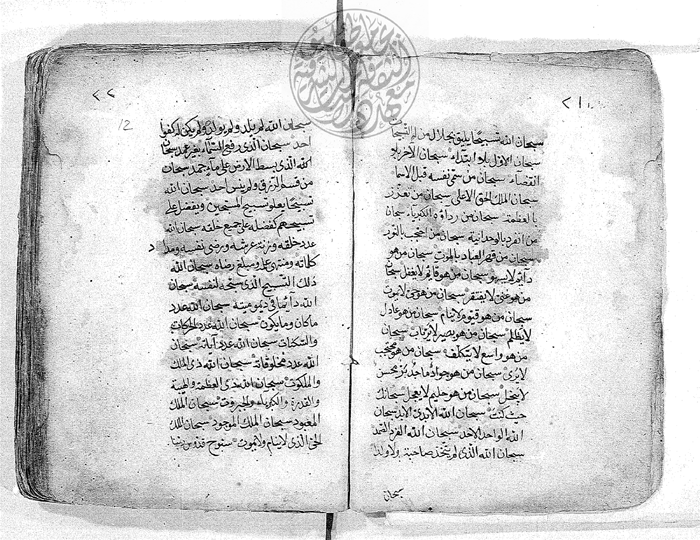 ٢١
سبحان الله تسبيحا يليق بجلال من له السبحات
سبحان الاول بلا ابتداء سبحان الاخر بلا
انقضاء سبحان من سمى نفسه قبل الاسما
سبحان الملك الحق الاعلى سبحان من تعزز
بالعظمة سبحان من رداؤه الكبرياء سبحان
من انفرد بالوحدانية سبحان من احتجب بالنور
سبحان من قهر العباد بالموت سبحان من هو
دائم لا يسهو سبحان من هو قائم لا يغفل سبحان
من هو غني لا يفتقر سبحان من هو حي لا يموت
سبحان من هو قيوم لا ينام سبحان من هو عادل
لا يظلم سبحان من هو بصير لا يرتاب سبحان
من هو واسع لا يتكلف سبحان من هو محتجب
لا يرى سبحان من هو جواد ماجد
لا يبخل سبحان من هو حليم لا يعجل سبحانك
حيث كنت سبحان الله الابدي الابد سبحان
الله الواحد الاحد سبحان الله الفرد الصمد
سبحان الله الذي لم يتخذ صاحبة ولا ولدا
سبحان
٢٢
12
سبحان الله لم يلد ولم يولد ولم يكن له كفوا
احد سبحان الذي رفع السماء بغير عمد سبحان
الله الذي بسط الارض على ماء جمد سبحان
من قسم الرزق ولم ينس احد سبحان الله
تسبيحا يعلو تسبيح المسبحين ويفضل على
تسبيحهم كفضله على جميع خلقه سبحان الله
عدد خلقه وزنة عرشه ورضى نفسه ومداد
كلماته ومنتهى علمه ومبلغ رضاه سبحان الله
ذلك التسبيح الذي سبحه لنفسه سبحان
الله دائما في ديموميته سبحان الله عدد
ما كان وما يكون سبحان الله عدد الحركات
والسكنات سبحان الله عدد آياته سبحان
الله عدد مخلوقاته سبحان الله ذي الملك
والملكوت سبحان الله ذي العظمة والهيبة
والقدرة والكبرياء والجبروت سبحان الملك
المعبود سبحان الملك الموجود سبحان الملك
الحي الذي لا ينام ولا يموت سبوح قدوس ربنا